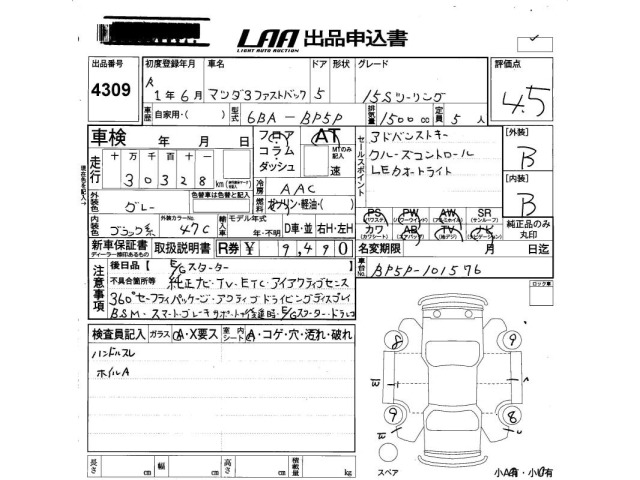 LAA 出品申込書
LIGHT AUTO AUCTION
出品番号 初度登録年月 車名 ドア 形状 グレード 評価点
4309 R 1年6月 マツダ3ファストバック 5 15Sツーリング 4.5
車歴 自家用・( ) 型式 6BA-BP5P 排気量 1500 cc 定員 5人
車検 年 月 日 フロア・コラム・ダッシュ AT セールスポイント アドバンストキー [外装]
MTのみ記入 速 クルーズコントロール B
走行 十万千百十 30328 km LEDオートライト [内装]
現在を記入 冷房 AAC B
外装色 グレー 色替車は色替と記入 燃料 ガソリン・軽油・( ) PS AW SR
(サンルーフ)
内装色 ブラック系 外装カラーNo. 47C 輸入車 モデル年式 年・不明 D車・並 右H・左H カワ AB TV ナビ 純正品のみ丸印
新車保証書 取扱説明書 R券 ¥ 9,490 名変期限 月 日迄
ディーラー捺印あるもの
車台No. BP5P-101576
注意事項 後日品【E/Gスターター
不具合箇所等 純正ナビ・TV・ETC・アイアクティブセンス
360°セーフティパッケージ・アクティブドライビングディスプレイ
BSM・スマートブレーキサポート(後退時)・E/Gスターター・ドラレコ
ロック車
検査員記入 ガラス A・X要ス 室内シート A・コゲ・穴・汚れ・破れ
ハンドルスレ
ホイルA
8 9
W A
9 8
W W
長さ cm 幅 cm 高さ cm 積載量 kg
スペア 小A有・小U有